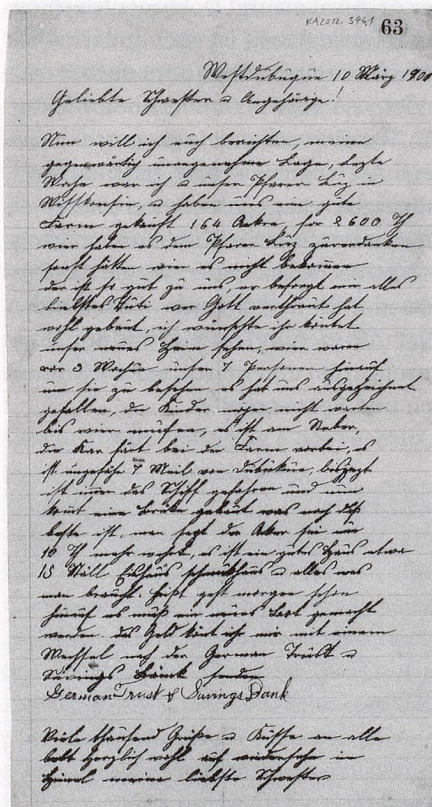 KA2012. 5461
63
Westdubuque 10 März 1900
Geliebte Schwester u Angehörige!
Nun will ich euch berichten, meine
gegenwärtig unangenehme Lage, letzte
Woche war ich u unser Pfarrer Lüz in
Wisskonsin, u haben uns ein gute
Farm gekauft 164 Acker, for 2600 Th
wier haben es dem Pfarer Lüz zuverdanken
sonst hätten wier es nicht bekommen
der ist so gut zu uns, er besorgt mir alles
liebstes Züti wer Gott vertraut hat
wohl gebaut, ich wünschte ihr köntet
unser neues Heim sehen, wier waren
vor 3 Wochen unser 7 Personen hinauf
um sie zu besehen es hat uns ausgezeichnet
gefallen, die Kinder mögen nicht warten
bis wier müssen, es ist am
die Kar färt bei der Farm vorbei, es
ist ungefähr 7 Meil von Dubukue, letztes
ist imer das Schiff gefahren und nun
wird eine Brüke gebaut was noch das
beste ist, man sagt der Aker sei um
10 Th mehr wehrt, es ist ein gutes Haus etwa
15 Ställ Eishaus u alles was
man braucht. geht morgen schon
hinauf es muß ein neues gemacht
werden. das Geld könt ihr mir mit einem
Wechsel nach der German Trust u
Savings Banck senden
German Trust & Savings Bank
Viele thausend Grüße u Küsse an alle
lebt herzlich wohl auf widersehn im
Himel meine liebste Schwester